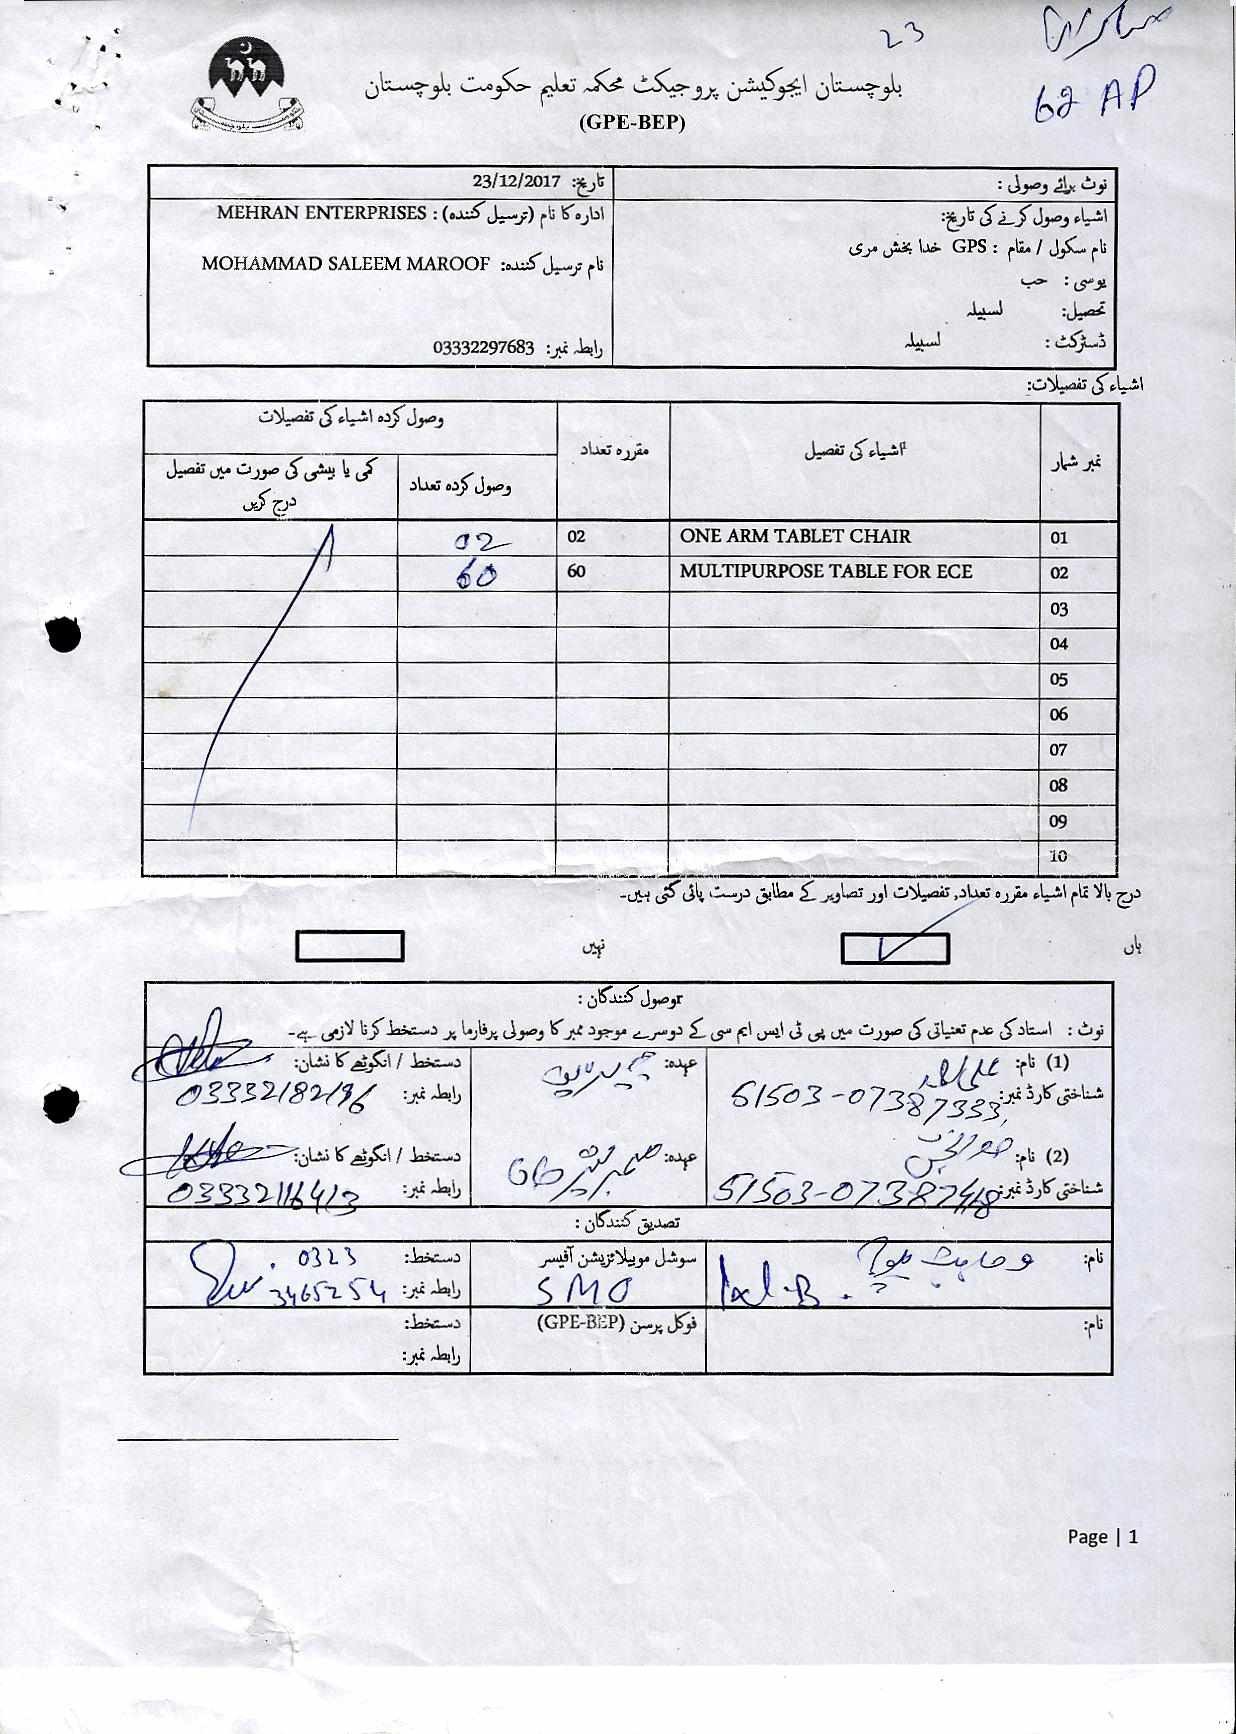 23
62 AP
بلوچستان ایجوکیشن پروجیکٹ محکمہ تعلیم حکومت بلوچستان
(GPE-BEP)
نوٹ برائے وصولی :
اشیاء وصول کرنے کی تاریخ:
نام سکول / مقام : GPS خدا بخش مری
یوسی : حب
تحصیل: لسبیلہ
ڈسٹرکٹ : لسبیلہ
تاریخ: 23/12/2017
ادارہ کا نام (ترسیل کنندہ) : MEHRAN ENTERPRISES
نام ترسیل کنندہ: MOHAMMAD SALEEM MAROOF
رابطہ نمبر: 03332297683
اشیاء کی تفصیلات:
نمبر شمار اشیاء کی تفصیل مقررہ تعداد وصول کردہ اشیاء کی تفصیلات
وصول کردہ تعداد کمی یا بیشی کی صورت میں تفصیل درج کریں
01 ONE ARM TABLET CHAIR 02 02
02 MULTIPURPOSE TABLE FOR ECE 60 60
03
04
05
06
07
08
09
10
درج بالا تمام اشیاء مقررہ تعداد, تفصیلات اور تصاویر کے مطابق درست پائی گئی ہیں۔
ہاں نہیں
rوصول کنندگان :
نوٹ : استاد کی عدم تعنیاتی کی صورت میں پی ٹی ایس ایم سی کے دوسرے موجود ممبر کا وصولی پرفارما پر دستخط کرنا لازمی ہے۔
(1) نام: عہدہ: دستخط / انگوٹھے کا نشان:
شناختی کارڈ نمبر: 51503-07387333 رابطہ نمبر: 03332182196
(2) نام: عہدہ: دستخط / انگوٹھے کا نشان:
شناختی کارڈ نمبر: رابطہ نمبر:
تصدیق کنندگان :
نام: سوشل موبیلائزیشن آفیسر دستخط: 0323
SMO رابطہ نمبر: 3465254
نام: فوکل پرسن (GPE-BEP) دستخط:
رابطہ نمبر:
Page | 1